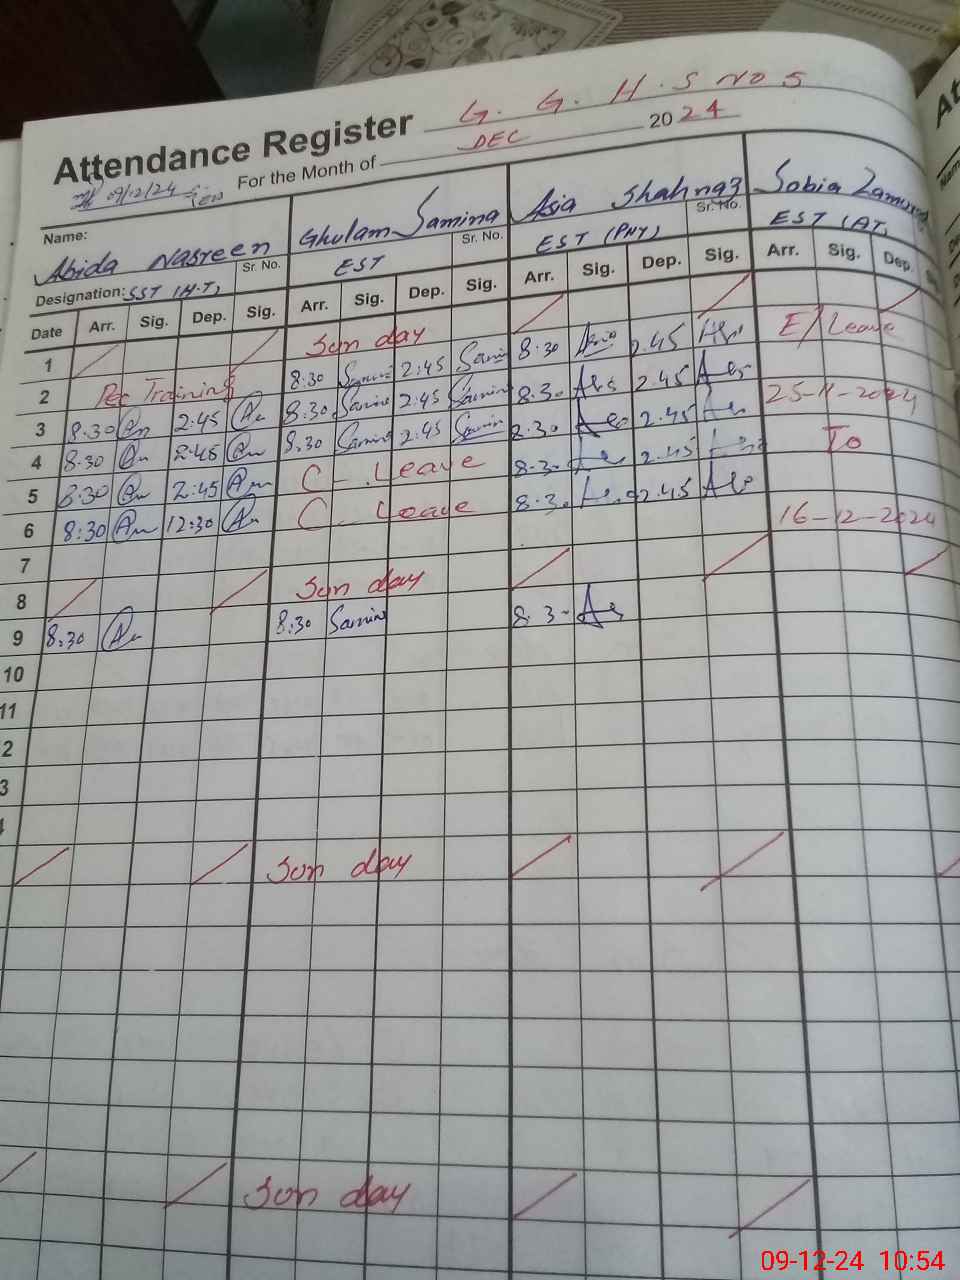 G. G. H. S NO 5
Attendance Register
For the Month of DEC 2024
09/12/24
Name: Abida Nasreen Ghulam Samina Asia Shahnaz Sobia
Designation: SST (H.T) Sr. No. EST Sr. No. EST (PHY) Sr. No. EST (AT)
Date Arr. Sig. Dep. Sig. Arr. Sig. Dep. Sig. Arr. Sig. Dep. Sig. Arr. Sig. Dep.
1 Sun day E/Leave
2 Training 8:30 2:45 8:30 2.45
3 8:30 2:45 8:30 2:45 8:30 2.45 25-11-2024
4 8:30 2:45 8:30 2:45 8:30 2.45 To
5 8:30 2:45 C. Leave 8:30 2.45
6 8:30 12:30 C. Leave 8:30 2.45 16-12-2024
7
8 Sun day
9 8:30 8:30 Samina 8:30
10
11
2
3
4
Sun day
Sun day
09-12-24 10:54